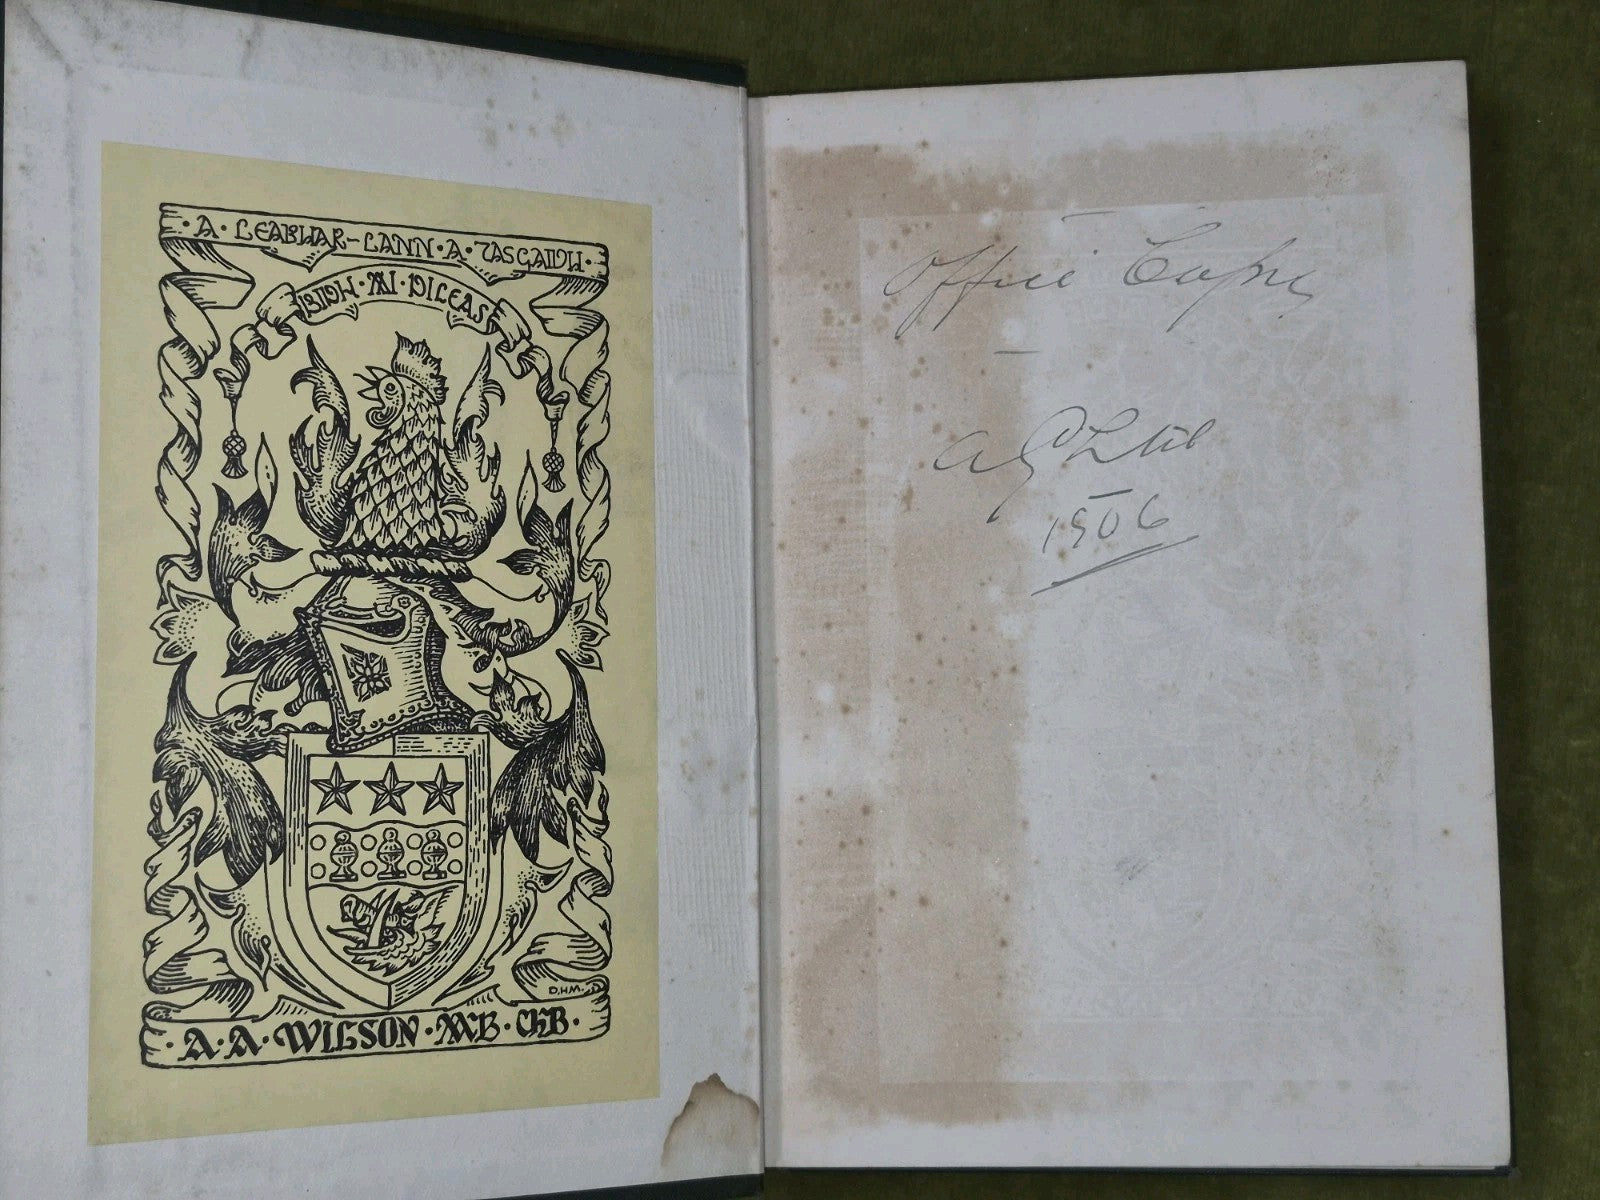 · A · LEABHAR-LANN · A · TASGAIDH ·
BIDH · MI · DILEAS
D.H.M.
· A · A · WILSON · MB · CHB ·
Office Copy
1906